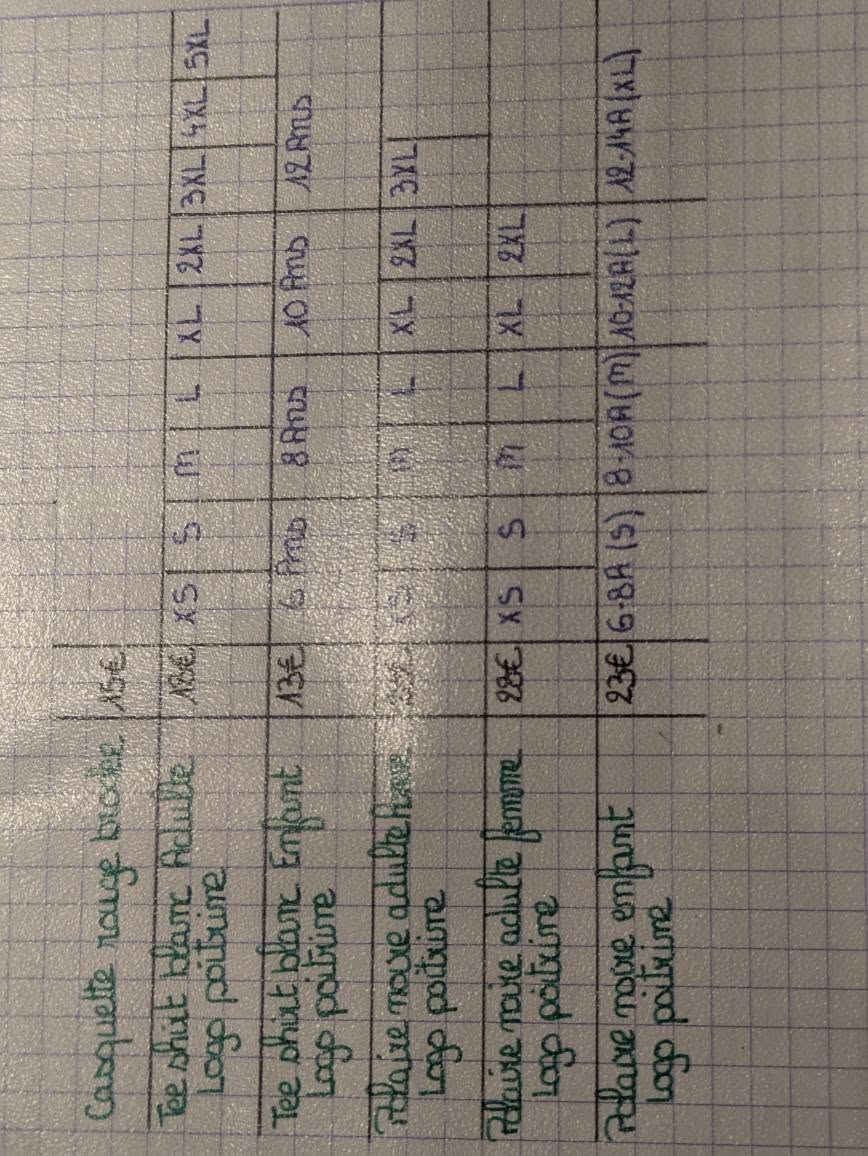 Casquette rouge brodée 15€
Tee shirt blanc Adulte 18€ XS S M L XL 2XL 3XL 4XL 5XL
Logo poitrine
Tee shirt blanc Enfant 13€ 6 Ans 8 Ans 10 Ans 12 Ans
Logo poitrine
Polaire noire adulte homme XS S M L XL 2XL 3XL
Logo poitrine
Polaire noire adulte femme 28€ XS S M L XL 2XL
Logo poitrine
Polaire noire enfant 23€ 6-8A (S) 8-10A (M) 10-12A (L) 12-14A (XL)
Logo poitrine